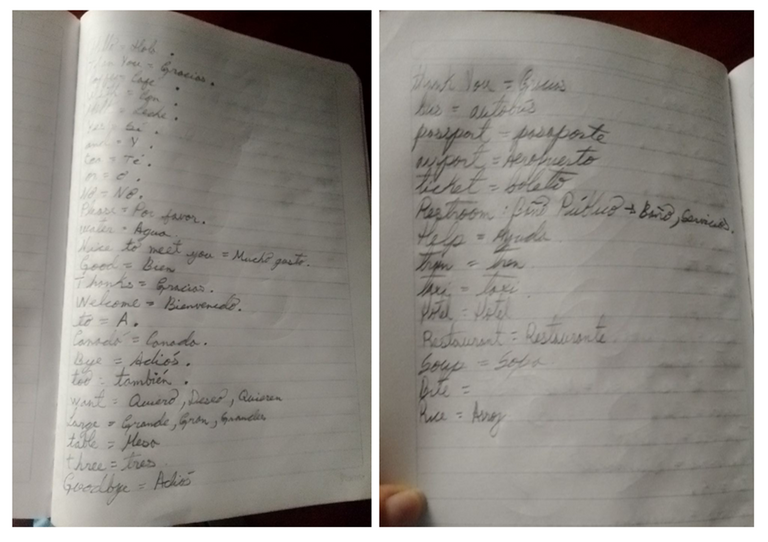 Hello = Hola.
Thank You = Gracias.
Coffee = Café.
With = Con.
Milk = Leche.
yes = Si.
and = Y.
tea = Té.
or = o.
No = No.
Please = Por favor.
Water = Agua.
Nice to meet you = Mucho gusto.
Good = Bien
Thanks = Gracias.
Welcome = Bienvenido.
to = A.
Canadá = Canada.
Bye = Adiós.
too = también.
want = Quiero, Deseo, Quieren
Large = Grande, Gran, Grandes
table = Mesa
three = tres
Goodbye = Adiós
thank You = Gracias
bus = autobús
passport = pasaporte
airport = Aeropuerto
ticket = boleto
Restroom: Público → Baño, Servicios.
Help = Ayuda
tren
taxi = taxi.
Hotel = Hotel
Restaurant = Restaurante
Soup = Sopa
Bite =
Rice = Arroz